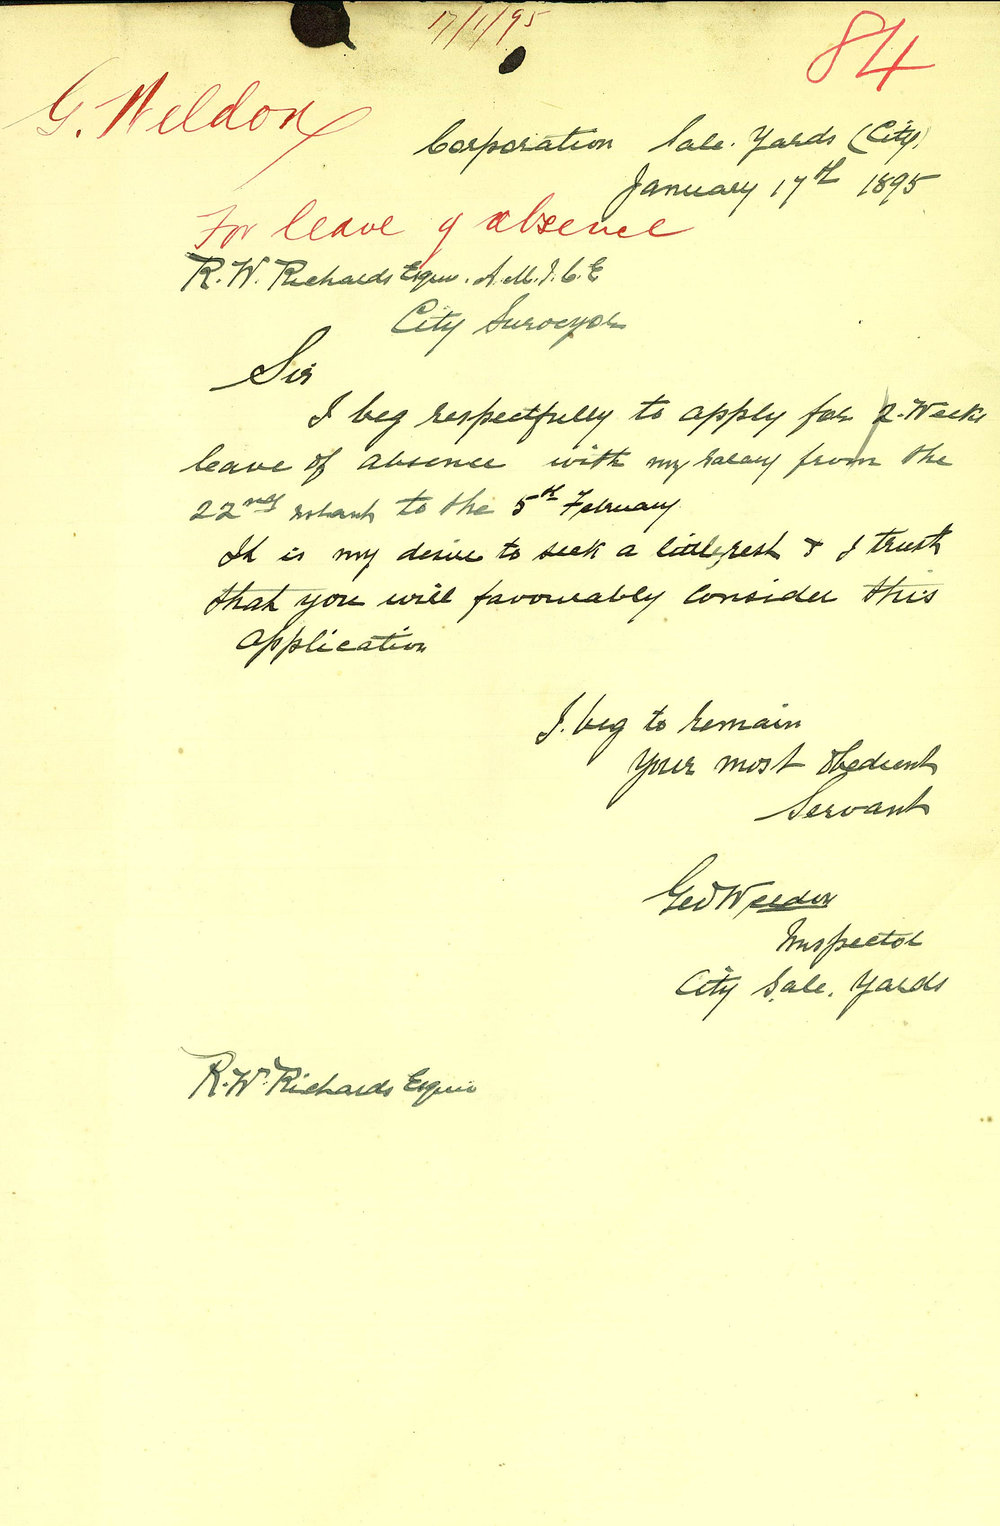 17/1/95
84
G. Weldon
Corporation Sale. Yards (City)
January 17th 1895
For leave of absence
R. W. Richards Esquir. A.M.I.C.E
City Surveyor
Sir
I beg respectfully to apply for 2. Weeks
leave of absence with my salary from the
22nd instant to the 5th February
It is my desire to seek a little rest & I trust
that you will favourably consider this
application
I. beg to remain
Your most obedient
Servant
Geo Weldon
Inspector
City Sale. Yards
R. W. Richards Esquir